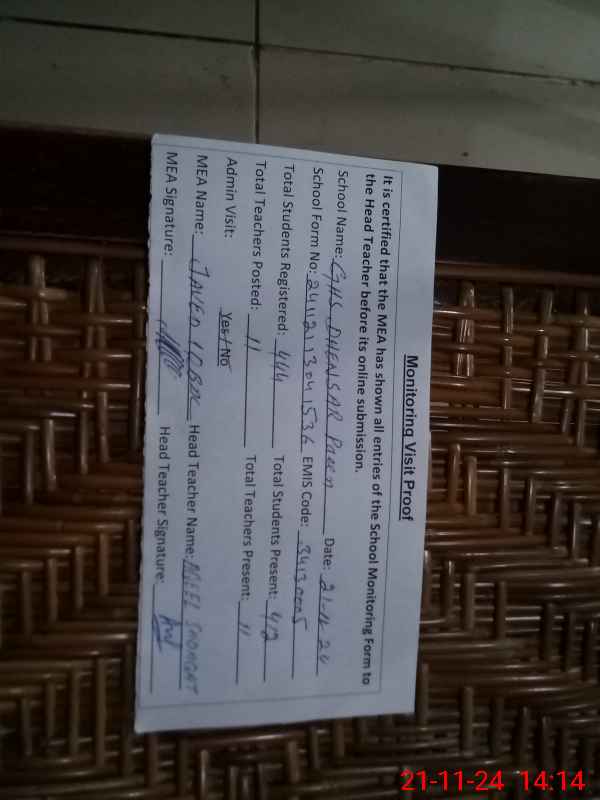 Monitoring Visit Proof
It is certified that the MEA has shown all entries of the School Monitoring Form to
the Head Teacher before its online submission.
School Name: GHS DHENSAR Date: 21-11-24
School Form No: 24112113041536 EMIS Code: 34130005
Total Students Registered: 444 Total Students Present: 412
Total Teachers Posted: 11 Total Teachers Present: 11
Admin Visit: Yes / No
MEA Name: JAVED IQBAL Head Teacher Name: SHOUKAT
MEA Signature: Head Teacher Signature:
21-11-24 14:14